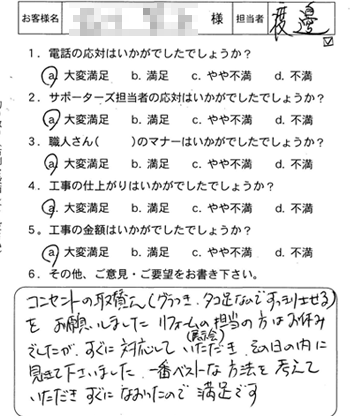 お客様名 様 担当者 渡邉
1．電話の応対はいかがでしたでしょうか？
a. 大変満足 b. 満足 c. やや不満 d. 不満
2．サポーターズ担当者の応対はいかがでしたでしょうか？
a. 大変満足 b. 満足 c. やや不満 d. 不満
3．職人さん( )のマナーはいかがでしたでしょうか？
a. 大変満足 b. 満足 c. やや不満 d. 不満
4．工事の仕上がりはいかがでしたでしょうか？
a. 大変満足 b. 満足 c. やや不満 d. 不満
5．工事の金額はいかがでしたでしょうか？
a. 大変満足 b. 満足 c. やや不満 d. 不満
6．その他、ご意見・ご要望をお書き下さい。
コンセントの取替え(グラつき、タコ足なのですっきりさせる)
を お願いしました リフォームの担当の方はお休み
(展示会)
でしたが、すぐに対応して いただき その日の内に
見きて下さいました。一番ベストな方法を考えて
いただき すぐになおったので 満足です